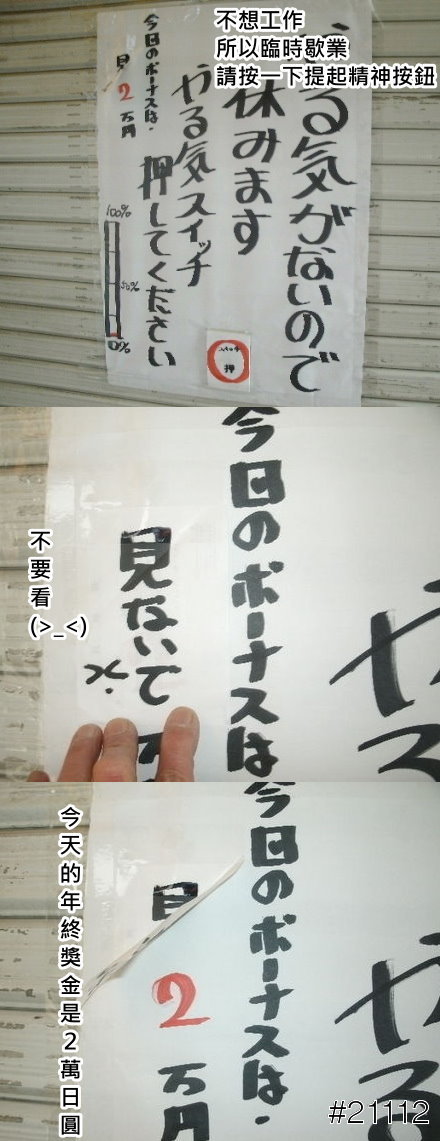 不想工作
所以臨時歇業
請按一下提起精神按鈕
やる気がないので
休みます
やる気スイッチ
押してください
今日のボーナスは・
見
2
万円
100%
50%
00%
押
今日のボーナスは
見ないで
万
や
ス
不要看
(>_<)
今日のボーナスは・
見
2
万円
や
る
今天的年終獎金是2萬日圓
#21112